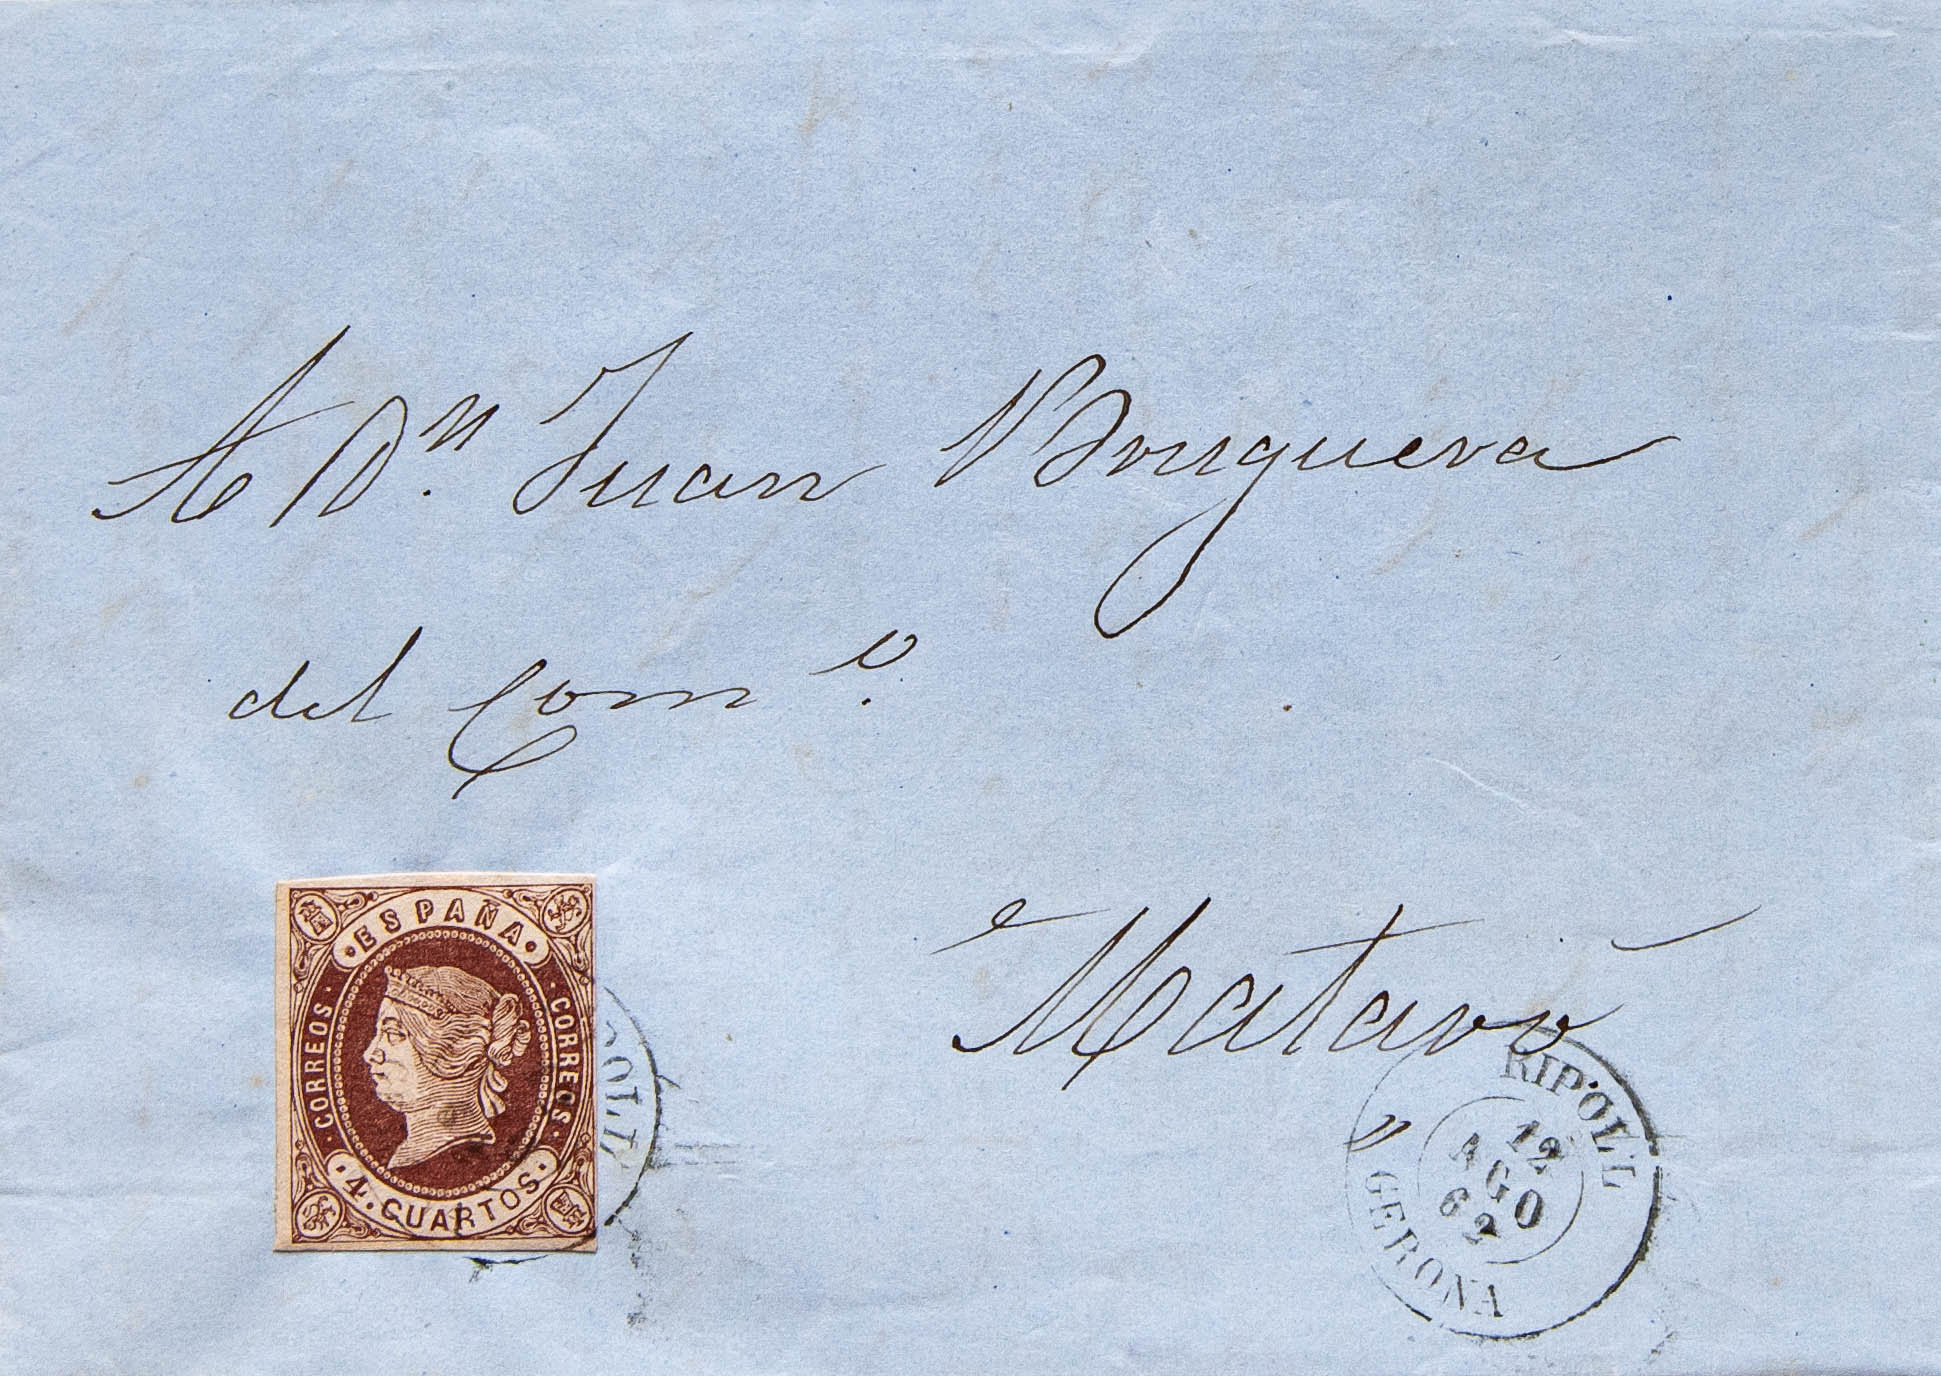 A Dn. Juan Bruguera
del Como.
Mataró
·ESPAÑA·
·CORREOS·
·CORREOS·
·4. CUARTOS·
POLL
RIPOLL
12
AGO
62
GERONA